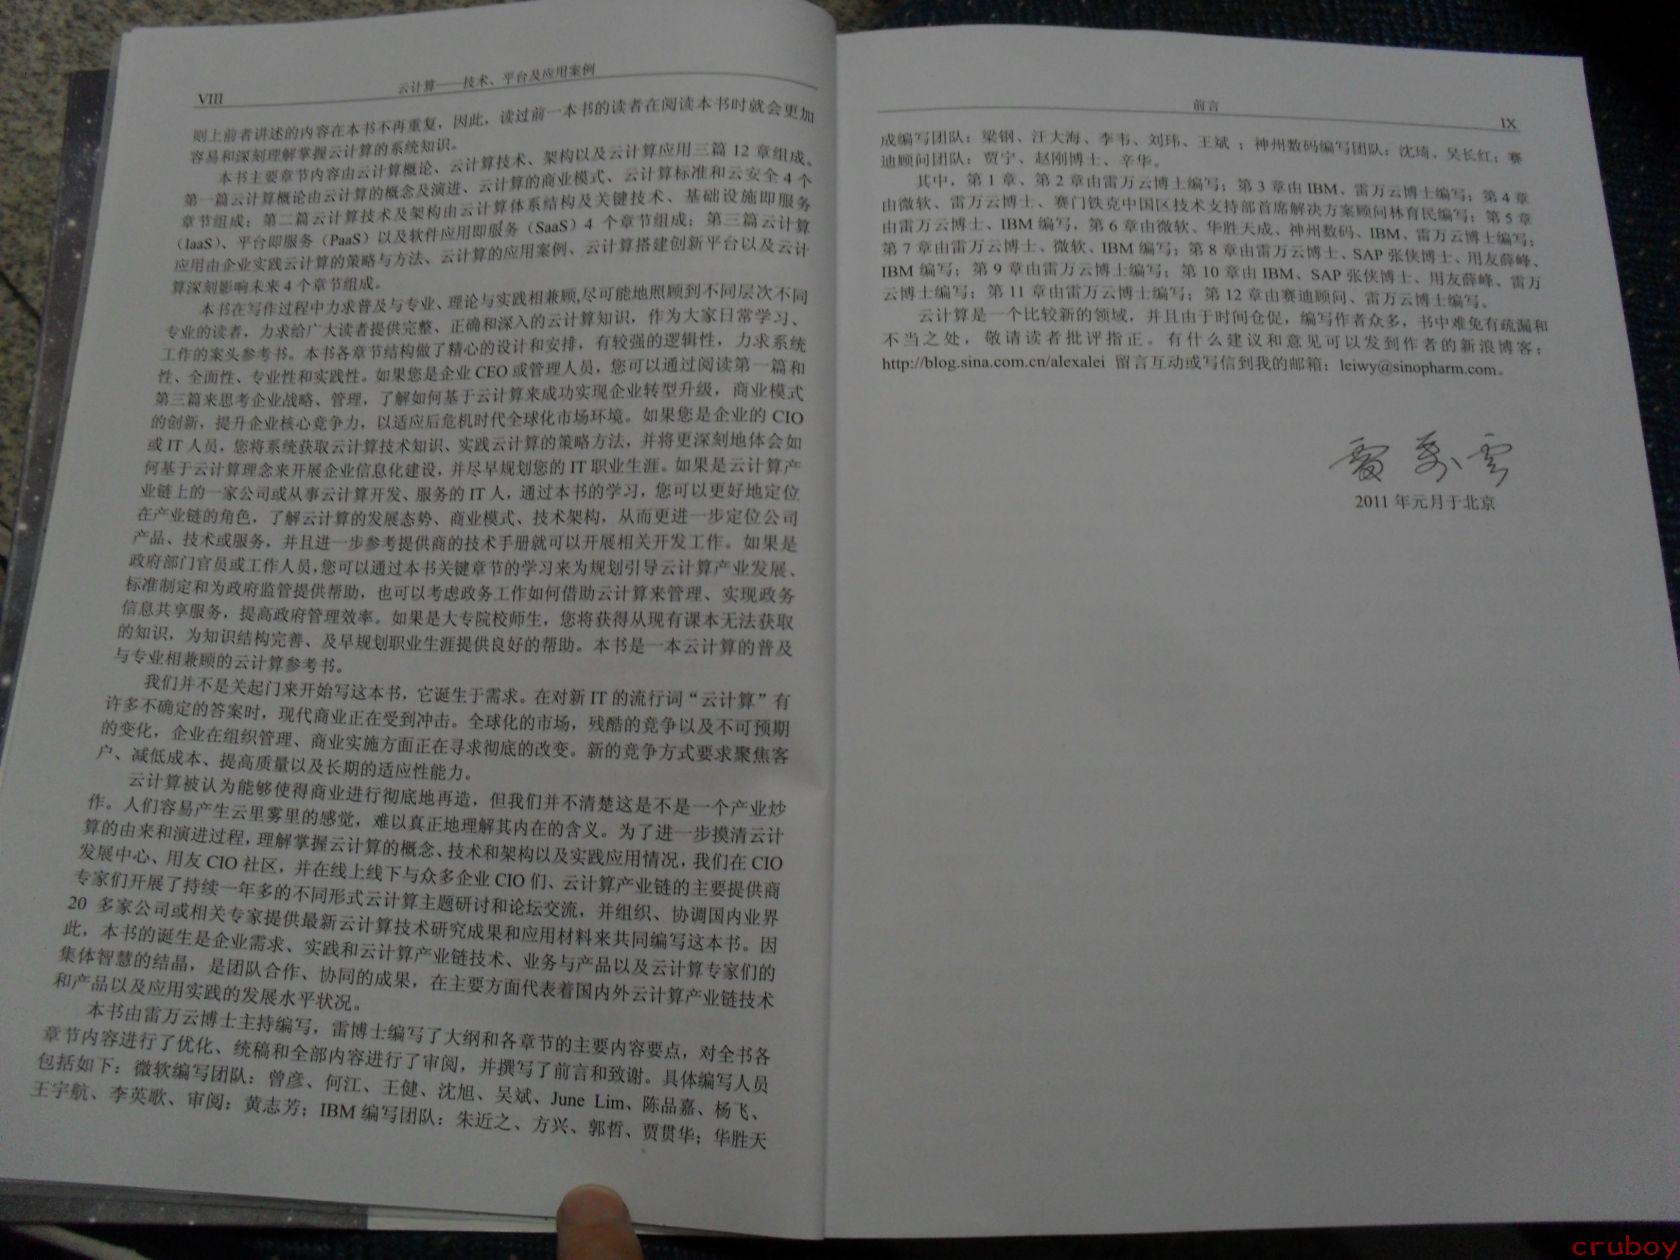 VIII
云计算——技术、平台及应用案例
则上前者讲述的内容在本书不再重复，因此，读过前一本书的读者在阅读本书时就会更加
容易和深刻理解掌握云计算的系统知识。
本书主要章节内容由云计算概论、云计算技术、架构以及云计算应用三篇 12 章组成。
第一篇云计算概论由云计算的概念及演进、云计算的商业模式、云计算标准和云安全 4 个
章节组成；第二篇云计算技术及架构由云计算体系结构及关键技术、基础设施即服务
（IaaS）、平台即服务（PaaS）以及软件应用即服务（SaaS）4 个章节组成；第三篇云计算
应用由企业实践云计算的策略与方法、云计算的应用案例、云计算搭建创新平台以及云计
算深刻影响未来 4 个章节组成。
本书在写作过程中力求普及与专业、理论与实践相兼顾,尽可能地照顾到不同层次不同
专业的读者，力求给广大读者提供完整、正确和深入的云计算知识，作为大家日常学习、
工作的案头参考书。本书各章节结构做了精心的设计和安排，有较强的逻辑性，力求系统
性、全面性、专业性和实践性。如果您是企业 CEO 或管理人员，您可以通过阅读第一篇和
第三篇来思考企业战略、管理，了解如何基于云计算来成功实现企业转型升级，商业模式
的创新，提升企业核心竞争力，以适应后危机时代全球化市场环境。如果您是企业的 CIO
或 IT 人员，您将系统获取云计算技术知识、实践云计算的策略方法，并将更深刻地体会如
何基于云计算理念来开展企业信息化建设，并尽早规划您的 IT 职业生涯。如果是云计算产
业链上的一家公司或从事云计算开发、服务的 IT 人，通过本书的学习，您可以更好地定位
在产业链的角色，了解云计算的发展态势、商业模式、技术架构，从而更进一步定位公司
产品、技术或服务，并且进一步参考提供商的技术手册就可以开展相关开发工作。如果是
政府部门官员或工作人员,您可以通过本书关键章节的学习来为规划引导云计算产业发展、
标准制定和为政府监管提供帮助，也可以考虑政务工作如何借助云计算来管理、实现政务
信息共享服务，提高政府管理效率。如果是大专院校师生，您将获得从现有课本无法获取
的知识，为知识结构完善、及早规划职业生涯提供良好的帮助。本书是一本云计算的普及
与专业相兼顾的云计算参考书。
我们并不是关起门来开始写这本书，它诞生于需求。在对新 IT 的流行词“云计算”有
许多不确定的答案时，现代商业正在受到冲击。全球化的市场，残酷的竞争以及不可预期
的变化，企业在组织管理、商业实施方面正在寻求彻底的改变。新的竞争方式要求聚焦客
户、减低成本、提高质量以及长期的适应性能力。
云计算被认为能够使得商业进行彻底地再造，但我们并不清楚这是不是一个产业炒
作。人们容易产生云里雾里的感觉，难以真正地理解其内在的含义。为了进一步摸清云计
算的由来和演进过程，理解掌握云计算的概念、技术和架构以及实践应用情况，我们在 CIO
发展中心、用友 CIO 社区，并在线上线下与众多企业 CIO 们、云计算产业链的主要提供商
专家们开展了持续一年多的不同形式云计算主题研讨和论坛交流，并组织、协调国内业界
20 多家公司或相关专家提供最新云计算技术研究成果和应用材料来共同编写这本书。因
此，本书的诞生是企业需求、实践和云计算产业链技术、业务与产品以及云计算专家们的
集体智慧的结晶，是团队合作、协同的成果，在主要方面代表着国内外云计算产业链技术
和产品以及应用实践的发展水平状况。
本书由雷万云博士主持编写，雷博士编写了大纲和各章节的主要内容要点，对全书各
章节内容进行了优化、统稿和全部内容进行了审阅，并撰写了前言和致谢。具体编写人员
包括如下：微软编写团队：曾彦、何江、王健、沈旭、吴斌、June Lim、陈品嘉、杨飞、
王宇航、李英歌、审阅：黄志芳；IBM 编写团队：朱近之、方兴、郭哲、贾贯华；华胜天
前言
IX
成编写团队：梁钢、汪大海、李韦、刘玮、王斌；神州数码编写团队：沈琦、吴长红；赛
迪顾问团队：贾宁、赵刚博士、辛华。
其中，第 1 章、第 2 章由雷万云博士编写；第 3 章由 IBM、雷万云博士编写；第 4 章
由微软、雷万云博士、赛门铁克中国区技术支持部首席解决方案顾问林育民编写；第 5 章
由雷万云博士、IBM 编写，第 6 章由微软、华胜天成、神州数码、IBM、雷万云博士编写；
第 7 章由雷万云博士、微软、IBM 编写；第 8 章由雷万云博士、SAP 张侠博士、用友薛峰、
IBM 编写；第 9 章由雷万云博士编写；第 10 章由 IBM、SAP 张侠博士、用友薛峰、雷万
云博士编写；第 11 章由雷万云博士编写；第 12 章由赛迪顾问、雷万云博士编写。
云计算是一个比较新的领域，并且由于时间仓促，编写作者众多，书中难免有疏漏和
不当之处，敬请读者批评指正。有什么建议和意见可以发到作者的新浪博客：
http://blog.sina.com.cn/alexalei 留言互动或写信到我的邮箱：leiwy@sinopharm.com。
雷萬雲
2011 年元月于北京
cruboy